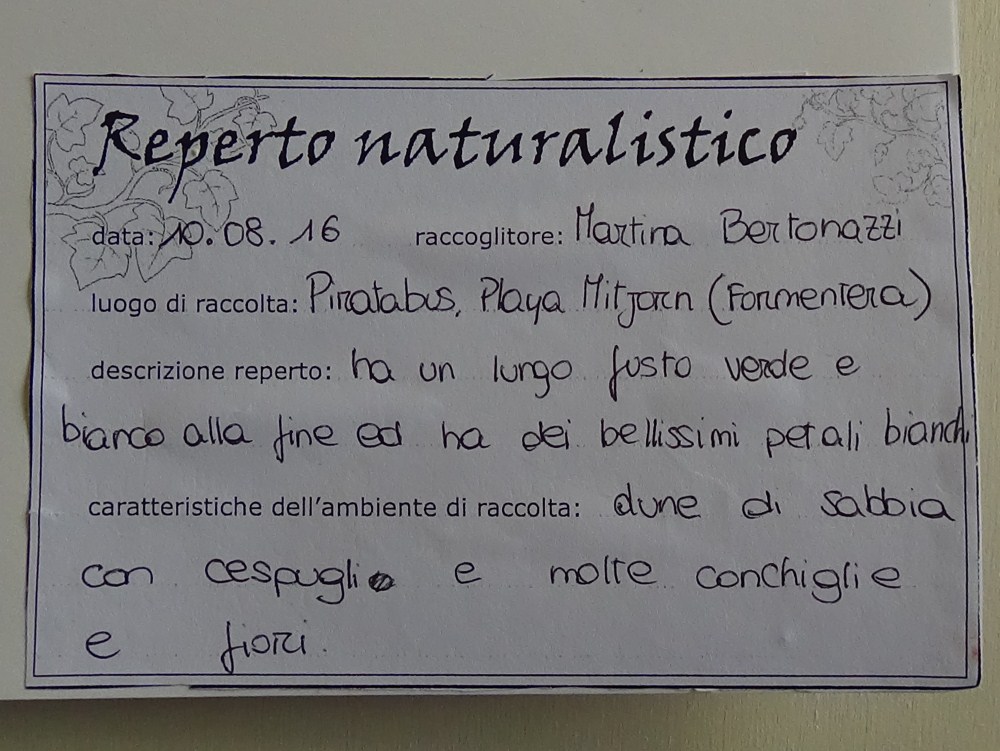 Reperto naturalistico
data: 10.08.16 raccoglitore: Martina Bertonazzi
luogo di raccolta: Piratabus, Playa Mitjorn (Formentera)
descrizione reperto: ha un lungo fusto verde e
bianco alla fine ed ha dei bellissimi petali bianchi
caratteristiche dell'ambiente di raccolta: dune di sabbia
con cespugli e molte conchiglie
e fiori.